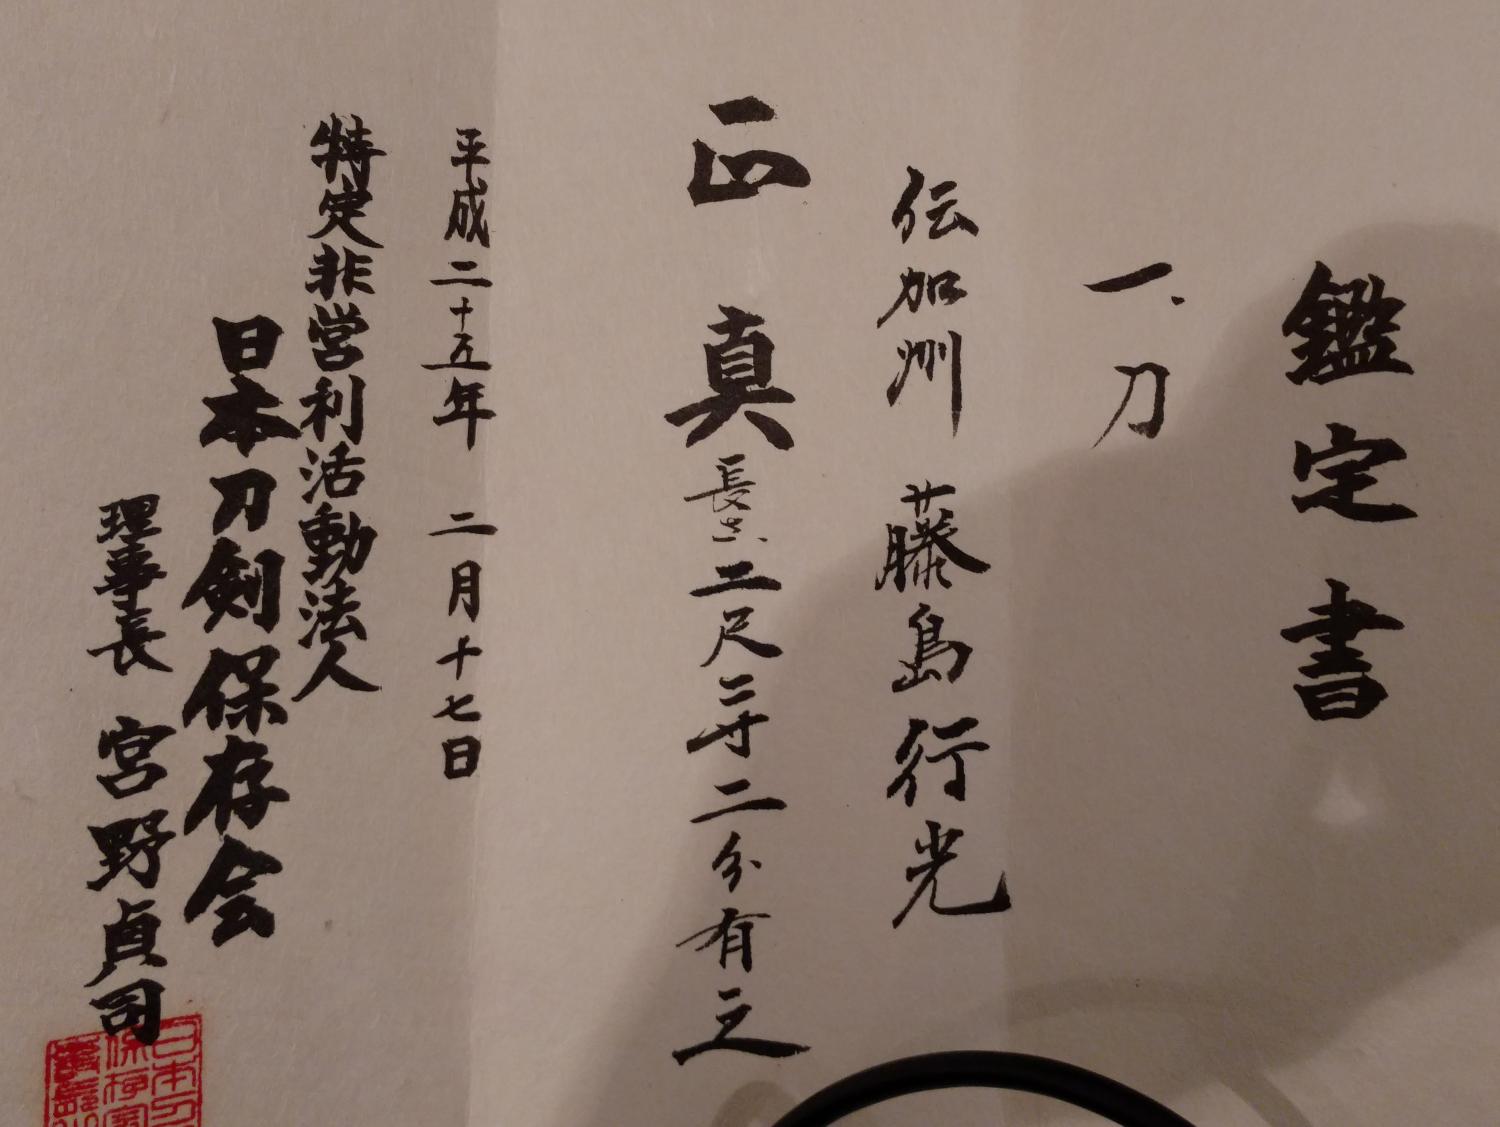 鑑定書
一、刀
伝加州 藤島行光
正真 長さ二尺二寸二分有之
平成二十五年 二月十七日
特定非営利活動法人
日本刀剣保存会
理事長 宮野貞司